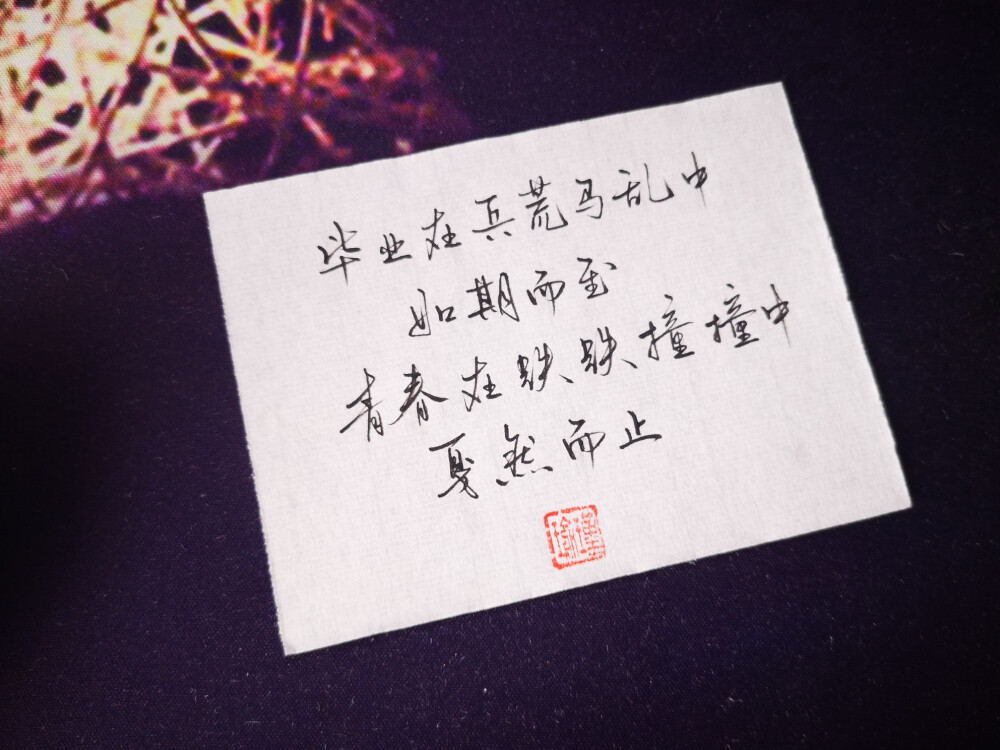 毕业在兵荒马乱中
如期而至
青春在跌跌撞撞中
戛然而止